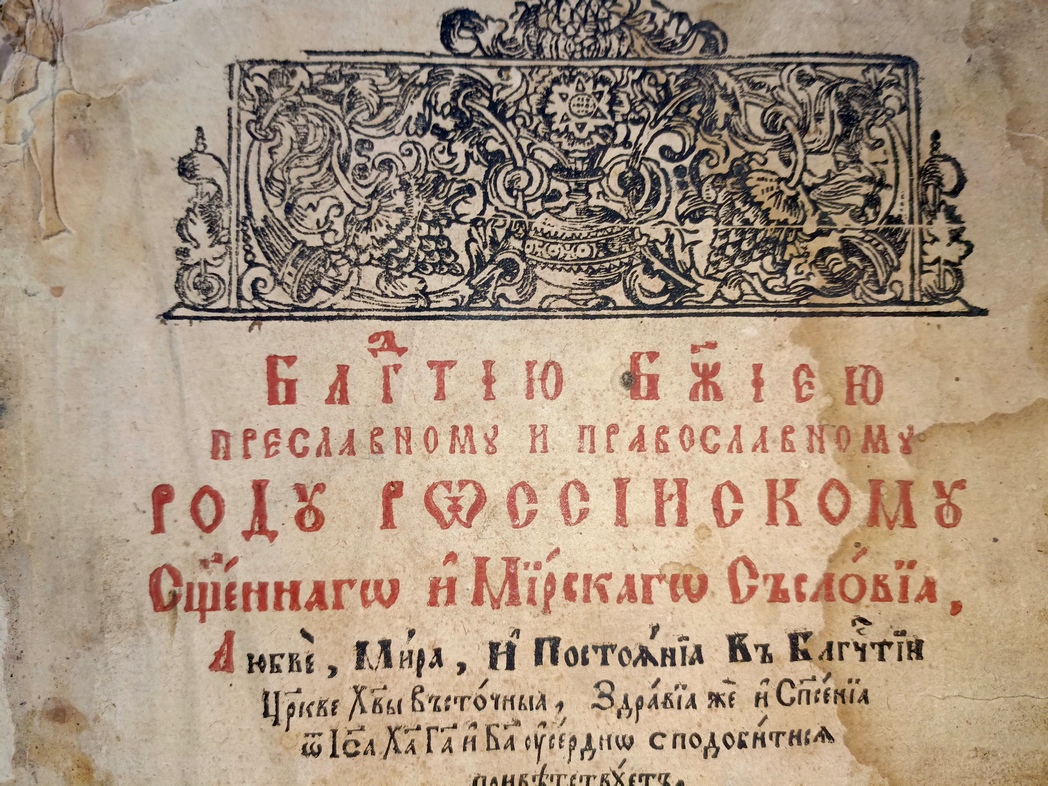 Блгⷣтїю Бж҃їею
преславному и православному
Родꙋ Рѡссїискому
Сщ҃е́ннагѡ и҆ Мїрскагѡ Съсло́вїа,
Любвѐ, Ми́ра, И҆ Постоѧ́нїа Въ Блгч҇тїи
Цр҃кве Хв҃ы Въсто́чныꙗ, Здра́вїа жѐ и҆ Сп҃се́нїа
ѿ Іс҃а Ха҃ Га҃ и҆ Ба҃ ᲂу҆се́рднѡ сподоби́тисѧ
привѣ́тствꙋетъ.